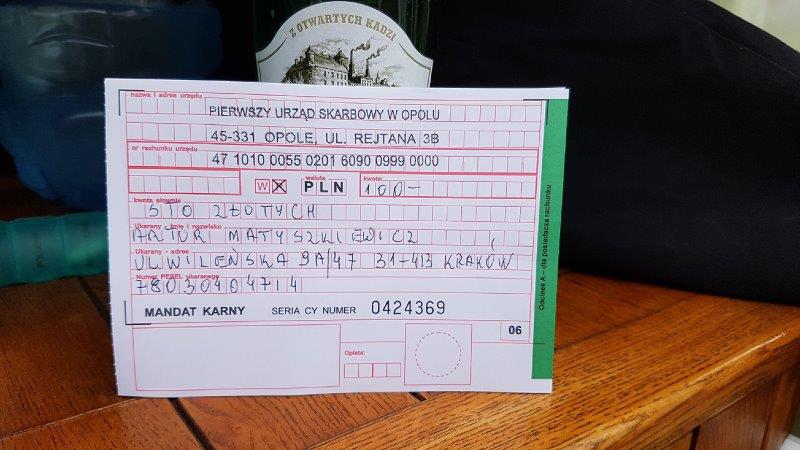 Z OTWARTYCH KADZI
nazwa i adres urzędu
PIERWSZY URZĄD SKARBOWY W OPOLU
45-331 OPOLE, UL. REJTANA 3B
nr rachunku urzędu
47 1010 0055 0201 6090 0999 0000
waluta
kwota
W X PLN 100-
kwota słownie
STO ZŁOTYCH
Ukarany - imię i nazwisko
ARTUR MATYSZKIEWICZ
Ukarany - adres
UL WILEŃSKA 9A/47 31-413 KRAKÓW
Numer PESEL ukaranego
78030404714
MANDAT KARNY SERIA CY NUMER 0424369
06
Opłata:
Odcinek A - dla posiadacza rachunku